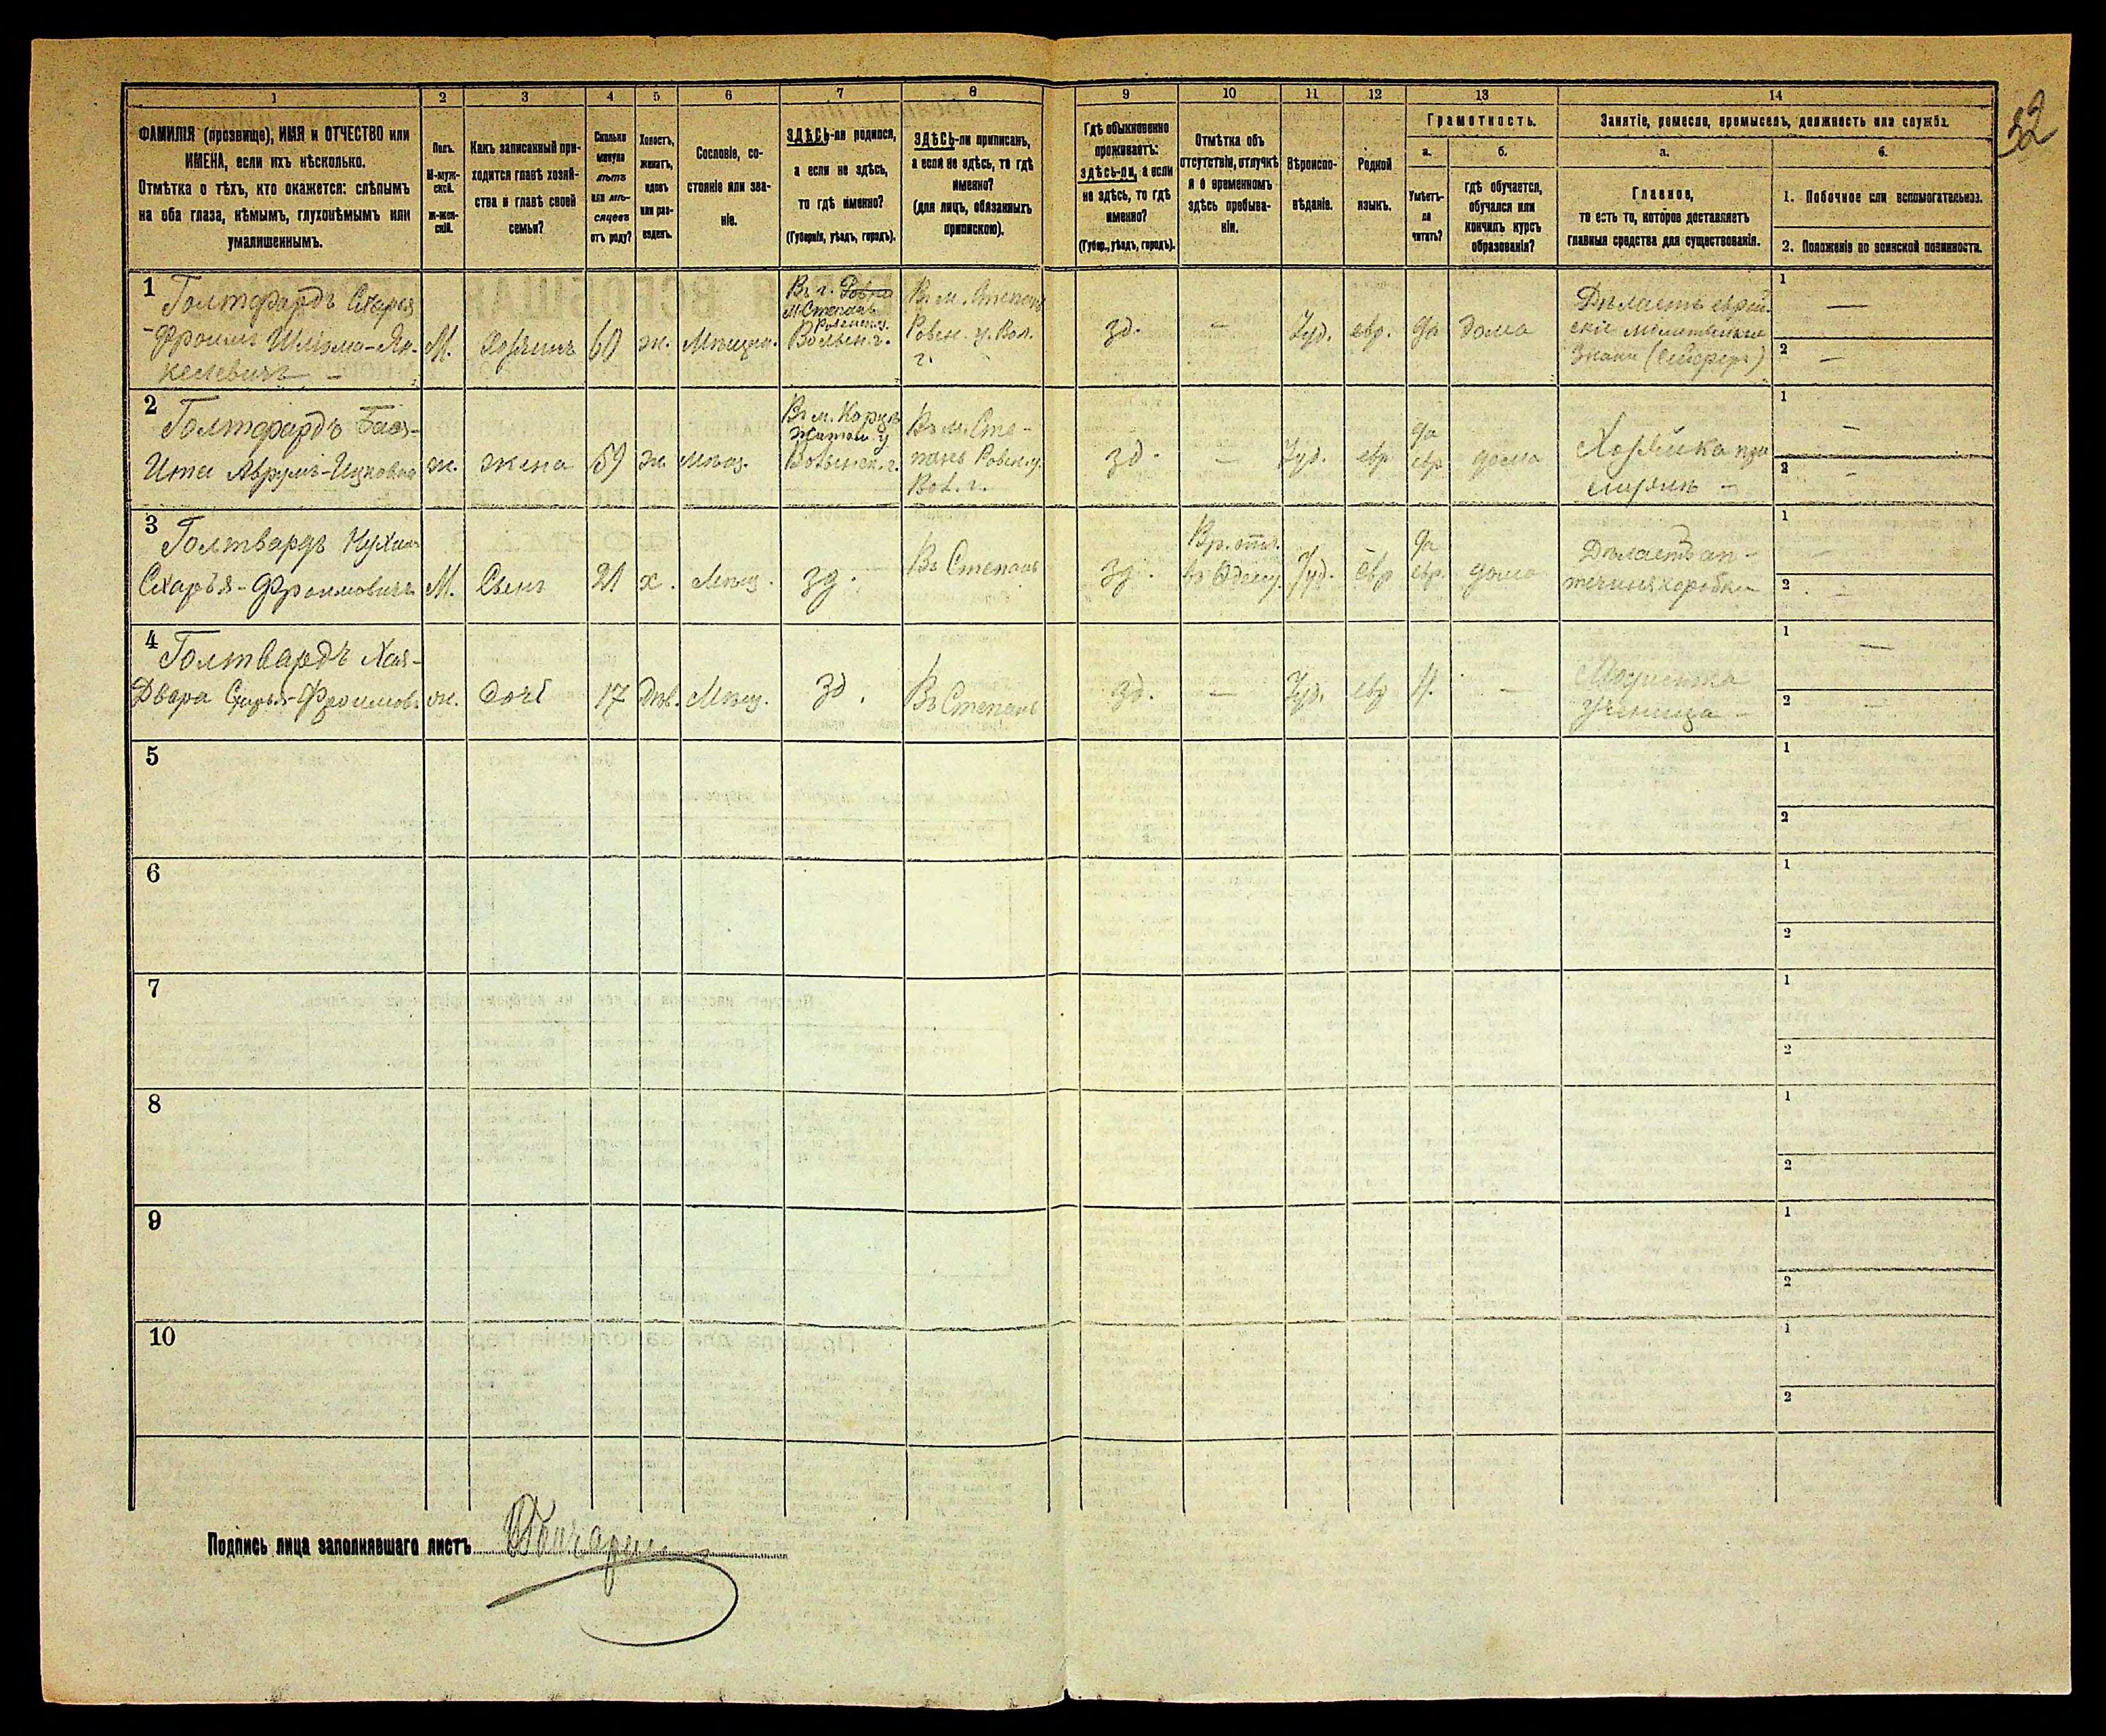 32
1 2 3 4 5 6 7 8 9 10 11 12 13 14
ФАМИЛІЯ (прозвище), ИМЯ и ОТЧЕСТВО или
ИМЕНА, если ихъ нѣсколько.
Отмѣтка о тѣхъ, кто окажется: слѣпымъ
на оба глаза, нѣмымъ, глухонѣмымъ или
умалишеннымъ.
Полъ.
М-муж-
ской.
ж-жен-
скій.
Какъ записанный при-
ходится главѣ хозяй-
ства и главѣ своей
семьи?
Сколько
минуло
лѣтъ
или мѣ-
сяцевъ
отъ роду?
Холостъ,
женатъ,
вдовъ
или раз-
веденъ.
Сословіе, со-
стояніе или зва-
ніе.
ЗДѢСЬ-ли родился,
а если не здѣсь,
то гдѣ именно?
(Губернія, уѣздъ, городъ).
ЗДѢСЬ-ли приписанъ,
а если не здѣсь, то гдѣ
именно?
(для лицъ, обязанныхъ
припискою).
Гдѣ обыкновенно
проживаетъ:
здѣсь-ли, а если
не здѣсь, то гдѣ
именно?
(Губер., уѣздъ, городъ).
Отмѣтка объ
отсутствіи, отлучкѣ
и о временномъ
здѣсь пребыва-
ніи.
Вѣроиспо-
вѣданіе.
Родной
языкъ.
Грамотность.
а.
Умѣетъ-
ли
читать?
б.
гдѣ обучается,
обучался или
кончилъ курсъ
образованія?
Занятіе, ремесло, промыселъ, должность или служба.
а.
Главное,
то есть то, которое доставляетъ
главныя средства для существованія.
б.
1. Побочное или вспомогательное.
2. Положеніе по воинской повинности.
1 Голтфардъ Схарья
-Фроимъ Шліома-Ян-
келевичъ -
М.
Хозяинъ
60
ж.
Мѣщан.
Въ г. Ровно
М. Степань
Ровенск. у.
Волын. г.
Въ м. Степань
Ровен. у. Вол.
г.
зд.
-
Іуд.
евр.
да
дома
Дѣлаетъ еврей-
скіе молитвенные
знаки
1 -
2 -
2 Голтфардъ Бася-
Ита Аврумъ-Ицковна
ж.
жена
59
ж.
Мѣщ.
Въ м. Корцѣ
Волынск. г.
Въ м. Сте-
пань Ровен. у.
Вол. г.
зд.
-
Іуд.
евр
да
евр
дома
Хозяйка при
1 -
2 -
3 Голтвардъ Нухим
Схарья-Фроимовичъ
М.
Сынъ
21
х.
Мѣщ.
зд.
Въ Степань
зд.
Вр. отл.
въ Одессу.
Іуд.
евр
да
евр.
дома
Дѣлаетъ ап-
течныя коробки
1 -
2 -
4 Голтвардъ Хая-
Двера Схарья-Фроимов.
ж.
дочь
17
дѣв.
Мѣщ.
зд.
Въ Степань
зд.
-
Іуд.
евр
Н.
-
Модистка
ученица -
1 -
2 -
5
1
2
6
1
2
7
1
2
8
1
2
9
1
2
10
1
2
Подпись лица заполнявшаго листъ